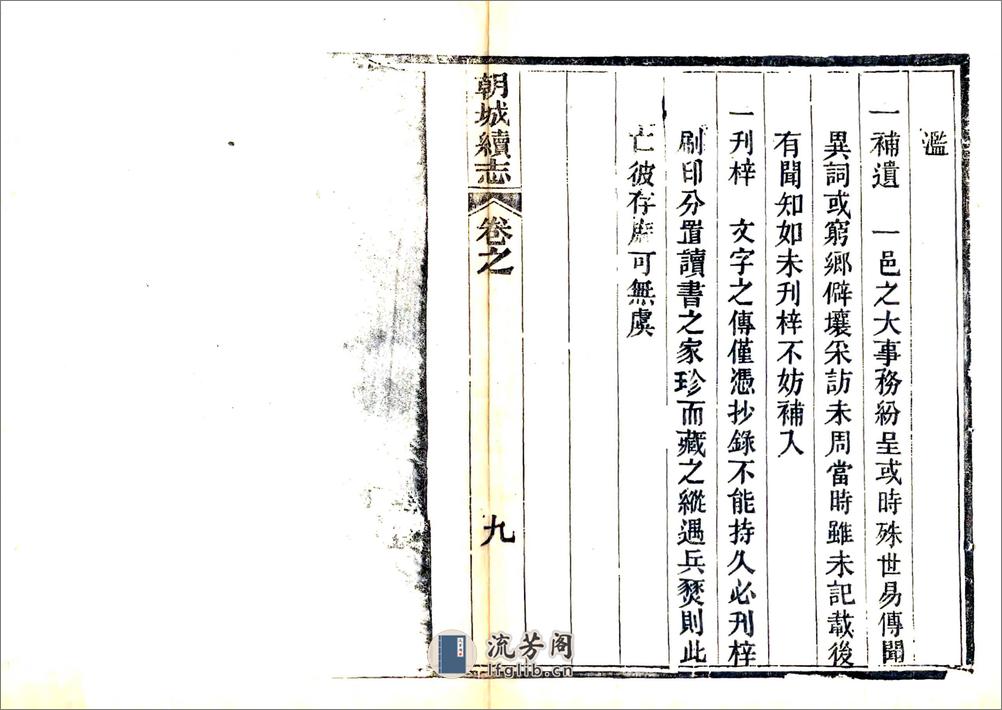 濫
一補遺　一邑之大事務紛呈或時殊世易傳聞
異詞或窮鄉僻壤采訪未周當時雖未記載後
有聞知如未刊梓不妨補入
一刊梓　文字之傳僅憑抄錄不能持久必刊梓
刷印分置讀書之家珍而藏之縱遇兵燹則此
亡彼存庶可無虞
朝城續志
卷之
九
流芳阁
lfglib.cn